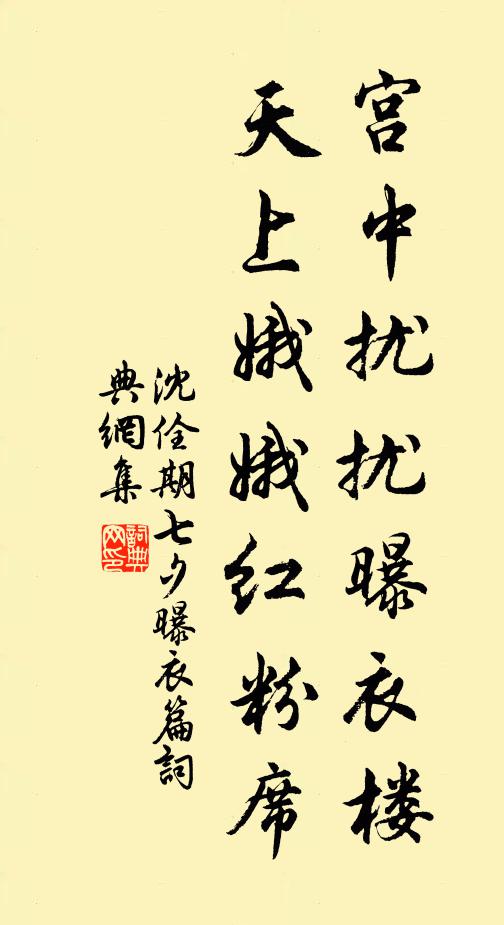 宫中扰扰曝衣楼
天上娥娥红粉席
沈佺期七夕曝衣篇詞
典網集
詞典
网印